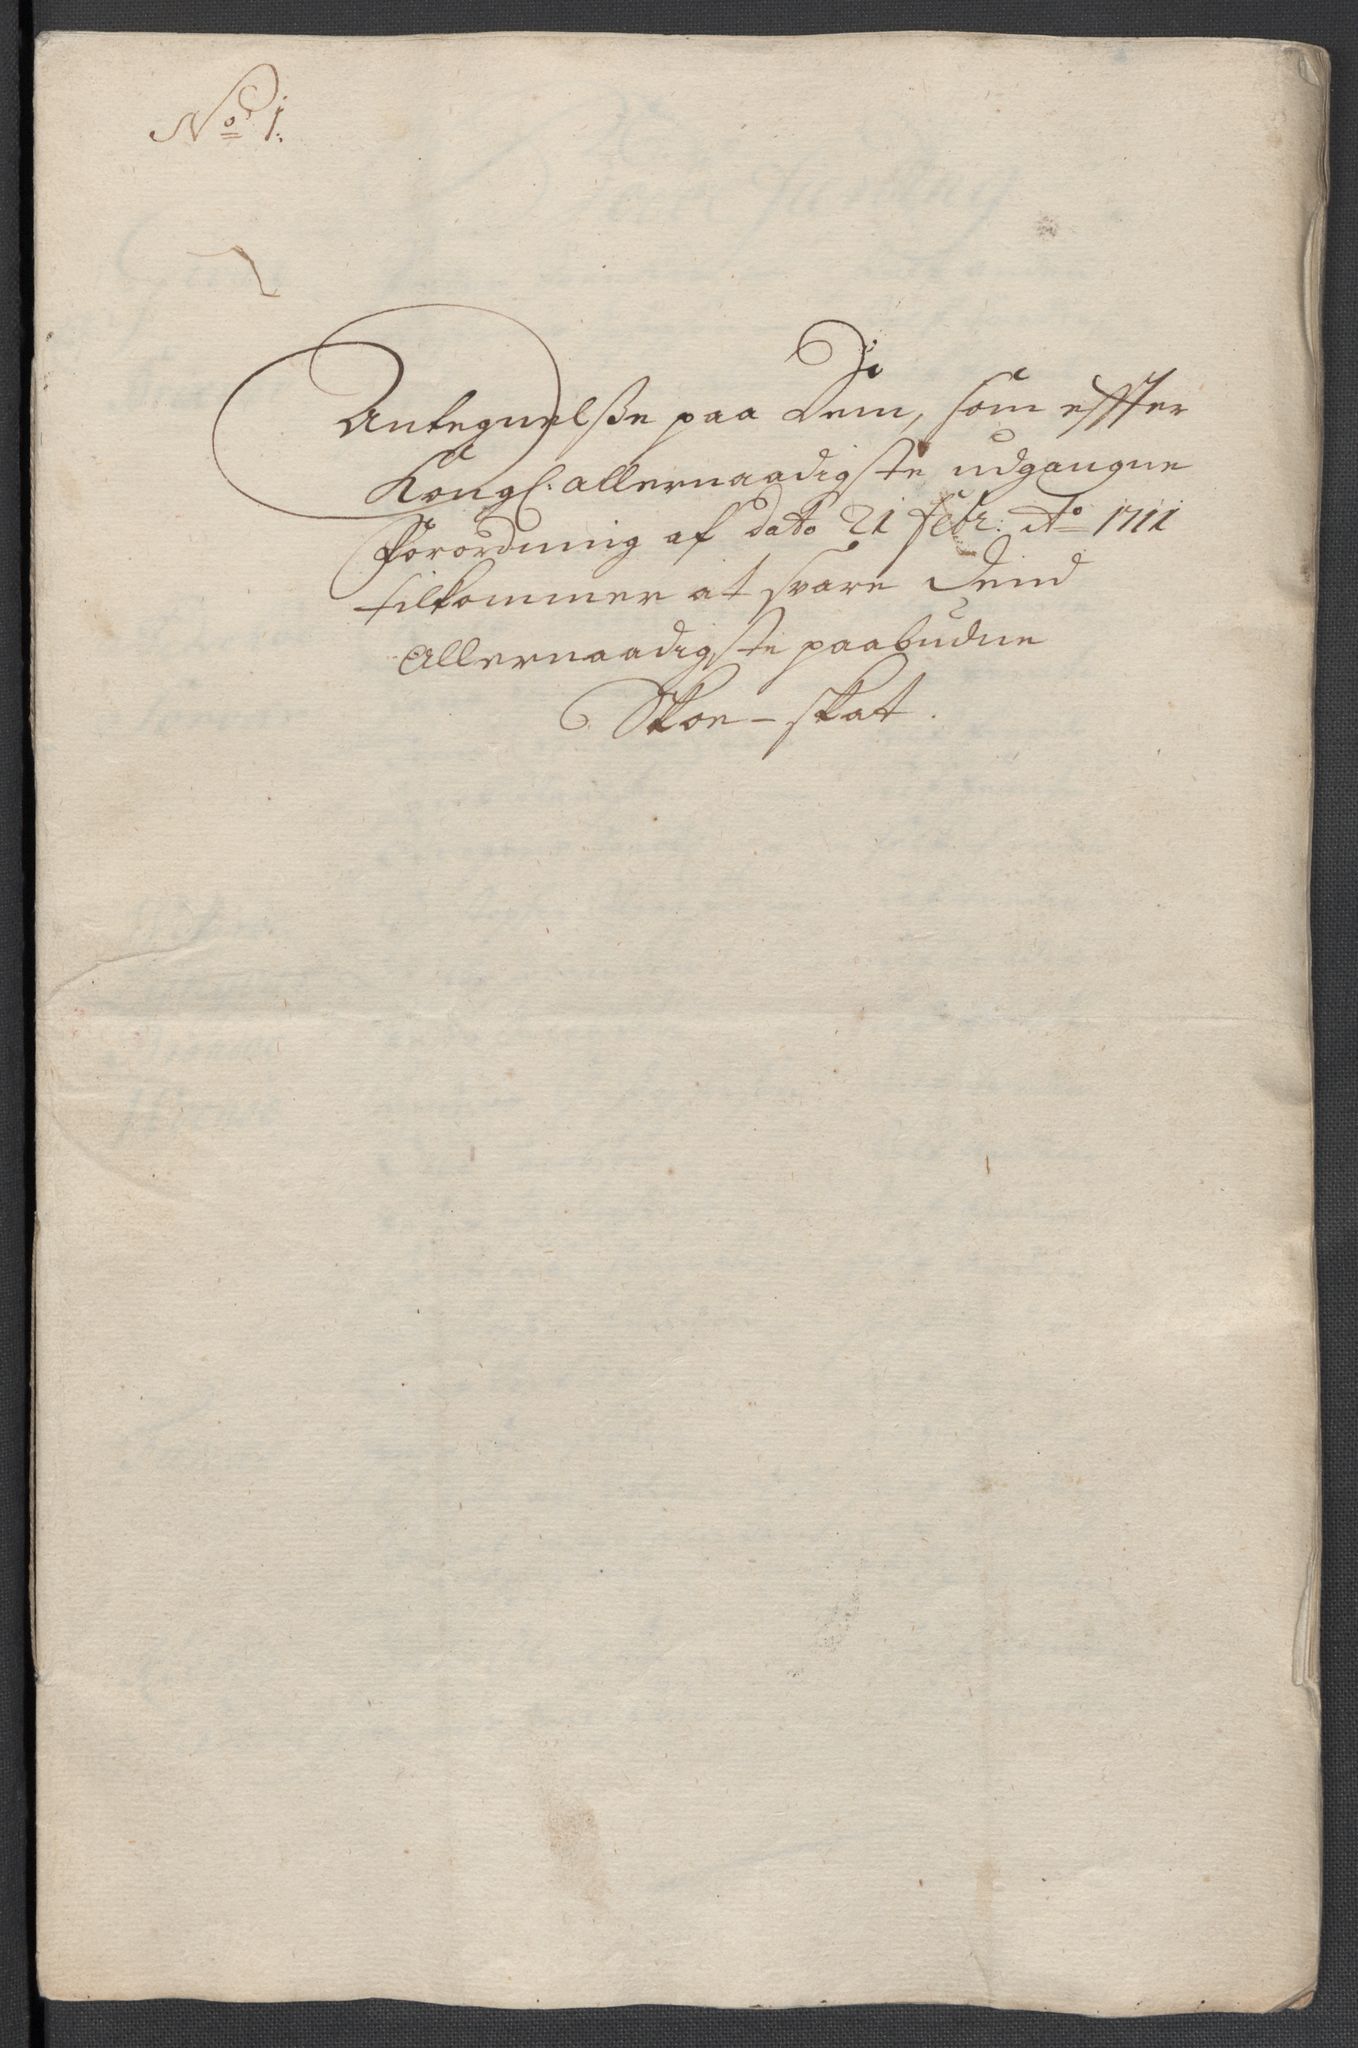 No 1.
Antegnelsse paa Dem, som effter
Kongl: allernaadigste udgangne
Forordning af dato 21 Febr: Ao 1711
tilkommer at svare Dend
Allernaadigste paabudne
Skoe-skat.